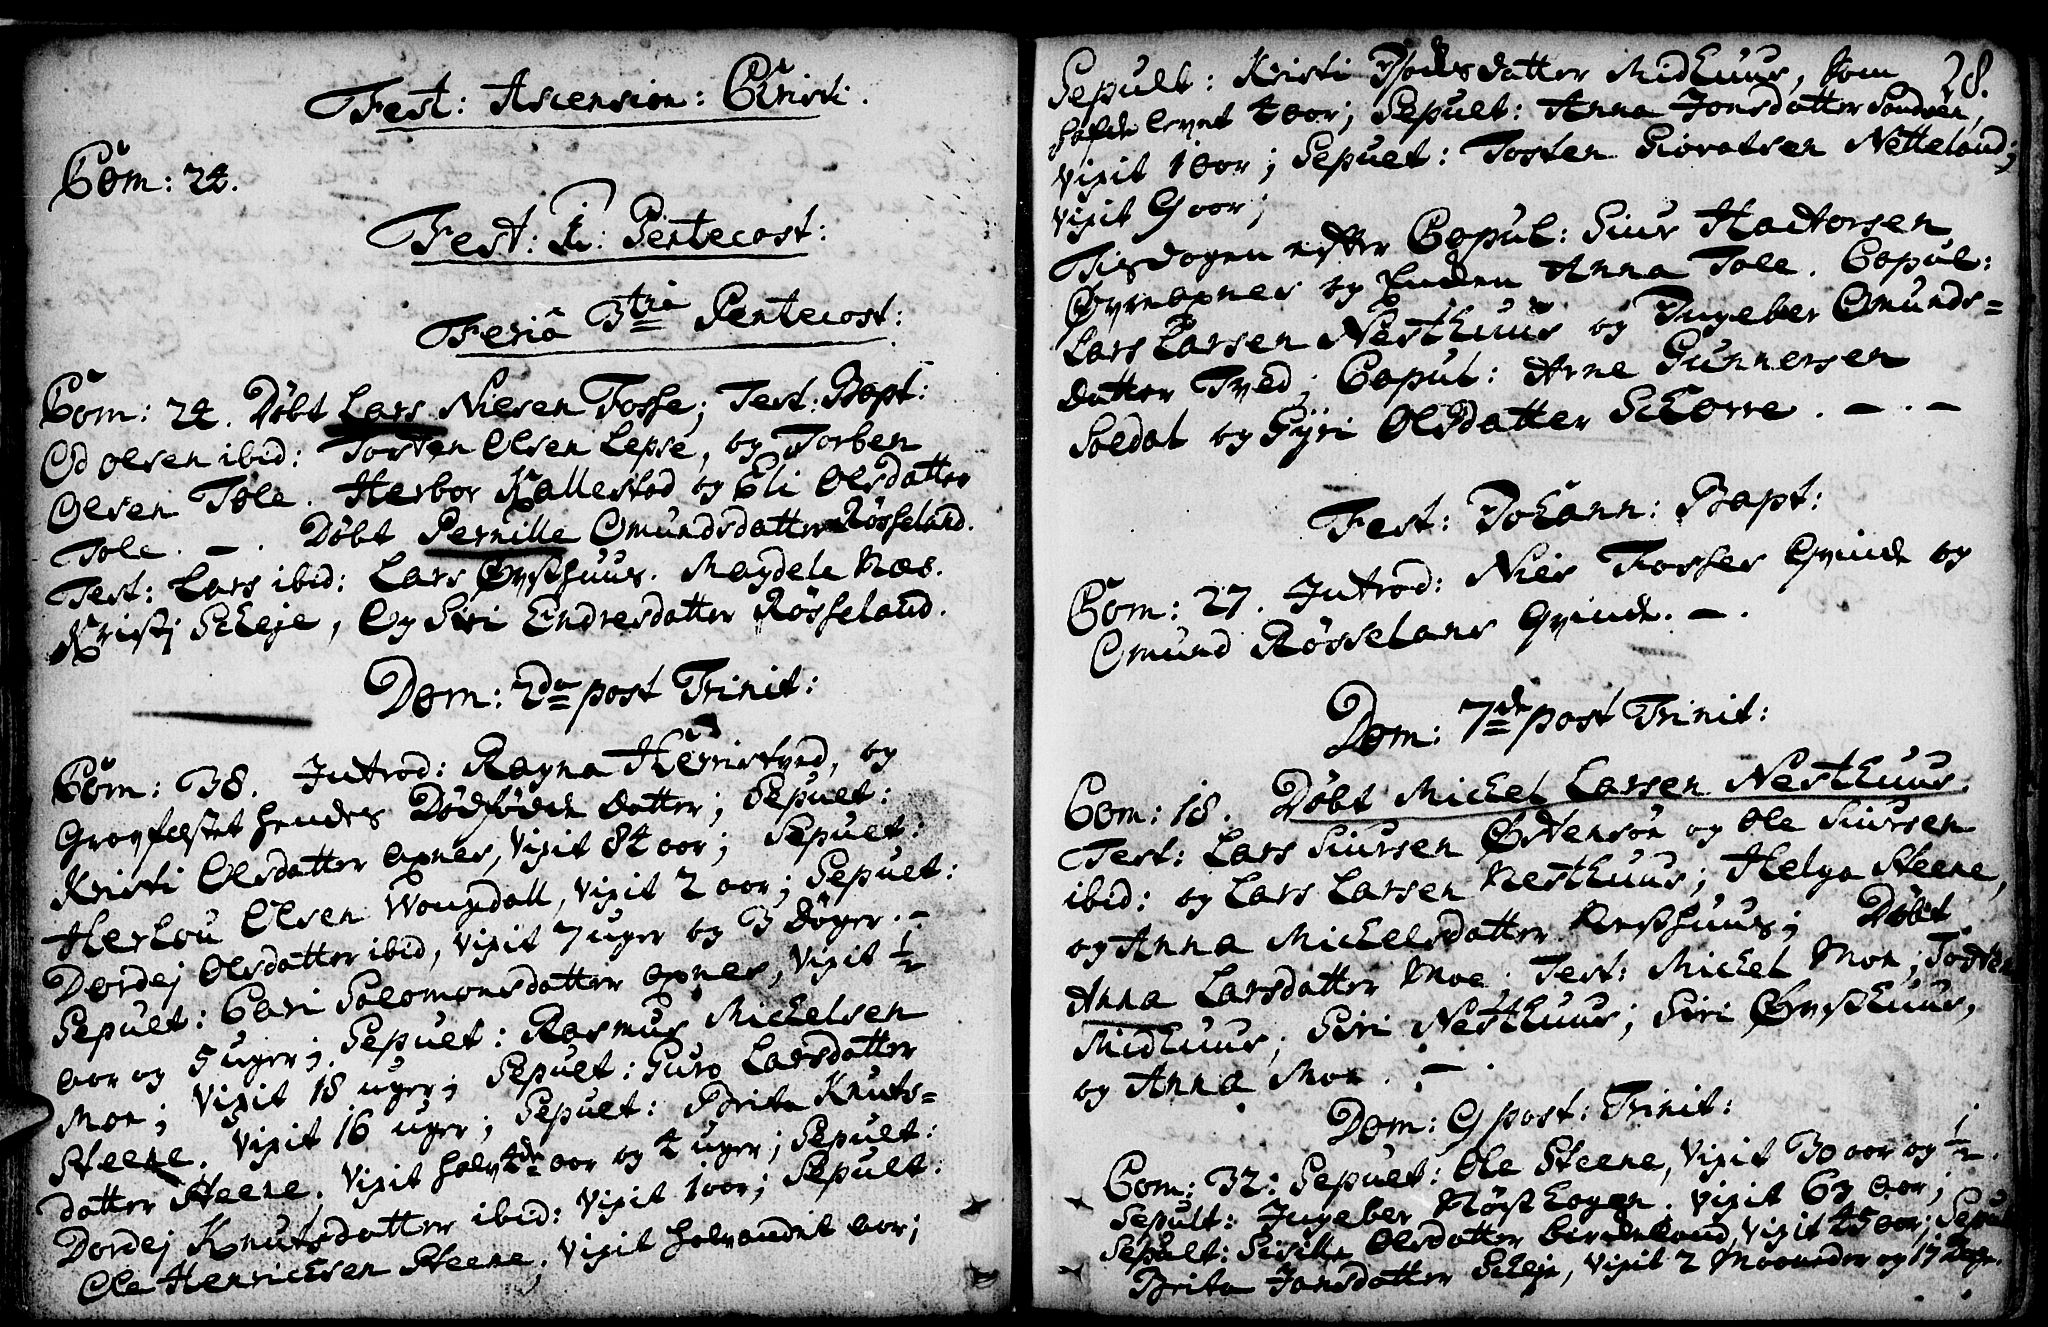 Fest: Ascension: Christi.
Com: 24.
Fest: Pentecost:
Feriâ 3tia Pentecost:
Com: 24. Døbt Lars Nilsen Fosse; Test: Bapt:
Od olsen ibid: Torsten Olsen Lepse, og Torben
Olsen Tole. Herbor Kallestad og Eli Olsdatter
Tole. —. Døbt Pernille Omundsdatter Røsseland.
Test: Lars ibid: Lars Øvsthuus. Magdele Næs.
Kristj Scheje, Og Siri Endresdatter Røsseland.
Dom: 2da post Trinit:
Com: 38. Introd: Ragna, og
Gravfæstet hendes Dødfødde datter; Sepult:
Kristi Olsdatter Axnes, vixit 84 aar; Sepult:
Herlou Olsen Wangdall, vixit 2 aar; Sepult:
Dordej Olsdatter ibid, vixit 7 uger og 3 døger. —
Sepult: Cari Salomonsdatter axnes, vixit ½
aar og 5 uger; Sepult: Rasmus Michelsen
Moe; vixit 18 uger; Sepult: Guro Larsdatter
Steene. vixit 16 uger; Sepult: Brita Knuts=
datter Steene, vixit halv4de aar og 4 uger; Sepult:
Dordej Knutsdatter ibid: vixit 1 aar; Sepult:
Ole Henrichsen Steene, vixit halvandet aar;
28.
Sepult: Kristi datter Midhuus, som
hafde levet 4 aar; Sepult: Anna Jonsdatter Sandven,
vixit 1 aar; Sepult: Tosten Siovatsen Netteland;
vixit 9 aar;
Tisdagen efter Copul: Siur Hactorsen
Øvreaxnes og Enken Anna Tole. Copul:
Lars Larsen Nesthuus og Ingeber Omunds=
datter Tved; Copul: Arne Gunnersen
Soldat og Gyri Olsdatter Schorre. —. —
Fest: Johann: Bapt:
Com: 27. Introd: Niels Fosses Qvinde og
Omund Røsselans Qvinde. —.
Dom: 7de post Trinit:
Com: 18. Døbt Michel Larsen Nesthuus.
Test: Lars Siursen Østensøn og Ole Siursen
ibid: og Lars Larsen Nesthuus; Helga Steene,
og Anna Michelsdatter Nesthuus; Døbt
Anna Larsdatter Moe; Test: Michel Moe;
Midhuus; Siri Nesthuus; Siri Øvsthuus,
og Anna Moe. —.
Dom: 9 post: Trinit:
Com: 32: Sepult: Ole Steene, vixit 30 aar og ½.
Sepult: Ingeber. vixit 69 aar;
Sepult: Sisille Olsdatter Birkeland, vixit 45 aar; Sepult
Brita Jonsdatter Scheje, vixit 2 Maaneder og 17 Dage.